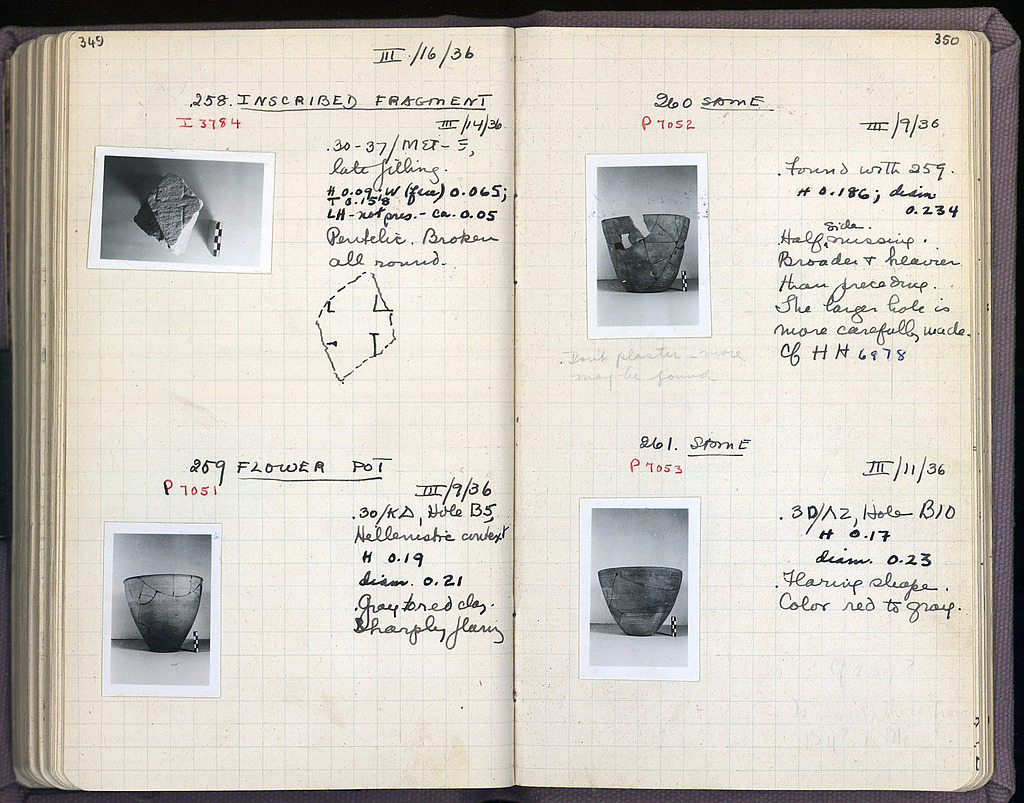 349
III /16/36
258. INSCRIBED FRAGMENT
I 3784
III/14/36
.30-37/ΜΣΤ-Ε,
late filling.
H 0.09; W (face) 0.065;
T 0.158
LH-not pres.- ca. 0.05
Pentelic. Broken
all round.
Δ
Ι
259 FLOWER POT
P 7051
III/9/36
.30/ΚΔ, Hole B5,
Hellenistic context
H 0.19
diam. 0.21
Gray to red clay.
Sharply flaring
350
260 SAME
P 7052
III/9/36
.Found with 259.
H 0.186; diam
0.234
side.
Half missing.
Broader & heavier
than preceding.
The larger hole is
more carefully made.
Cf HH 6978
Don't plaster - more
may be found
261. SAME
P 7053
III/11/36
.30/ΛΖ, Hole B10
H 0.17
diam. 0.23
.Flaring shape.
Color red to gray.